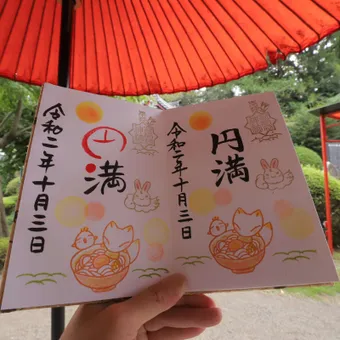 円満
令和二年十月三日
円満
令和二年十月三日